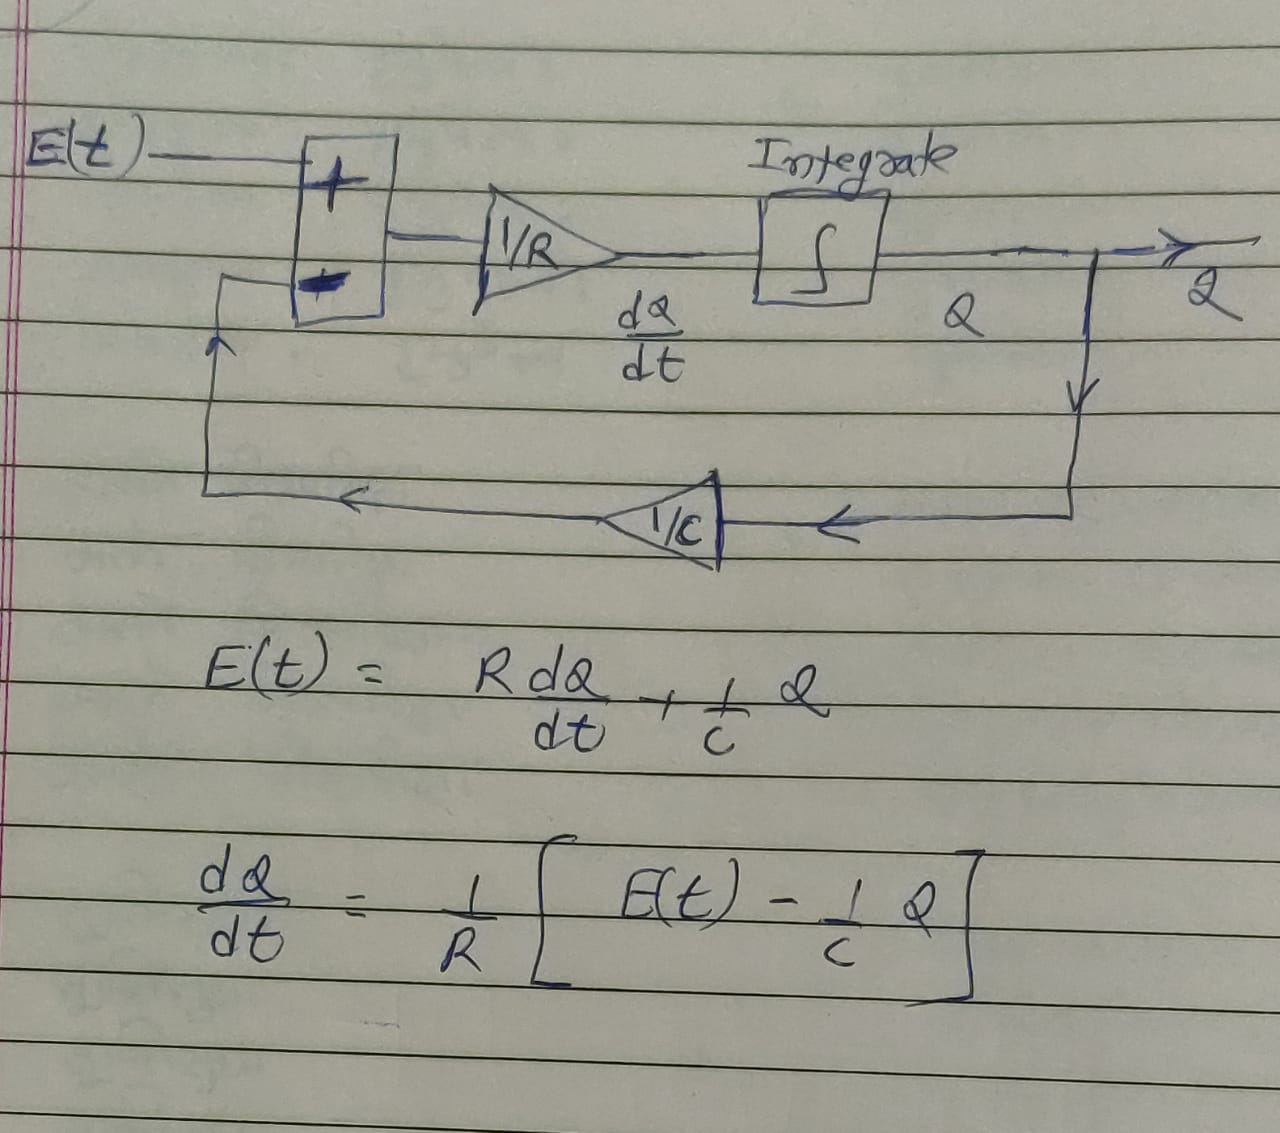 E(t)
+
Integrate
1/R
∫
-
dQ/dt
Q
Q
1/C
E(t) = R dQ/dt + 1/C Q
dQ/dt = 1/R [ E(t) - 1/C Q ]